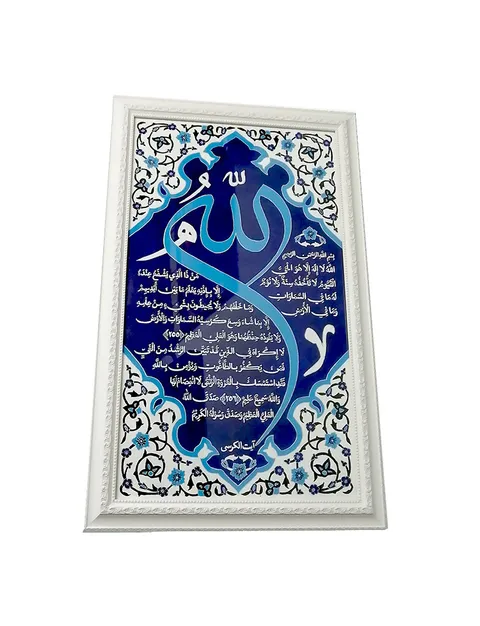 هو
الله
بسم الله الرحمن الرحیم
الله لا اله الا هو الحی
القیوم لا تأخذه سنة ولا نوم
له ما فی السماوات
وما فی الأرض
من ذا الذی یشفع عنده
إلا بإذنه یعلم ما بین أیدیهم
وما خلفهم ولا یحیطون بشیء من علمه
إلا بما شاء وسع کرسیه السماوات والأرض
ولا یئوده حفظهما وهو العلی العظیم ﴿۲۵۵﴾
لا إکراه فی الدین قد تبین الرشد من الغی
فمن یکفر بالطاغوت ویؤمن بالله
فقد استمسک بالعروة الوثقی لا انفصام لها
والله سمیع علیم ﴿۲۵۶﴾ صدق الله
العلی العظیم وصدق رسوله الکریم
آیت الکرسی